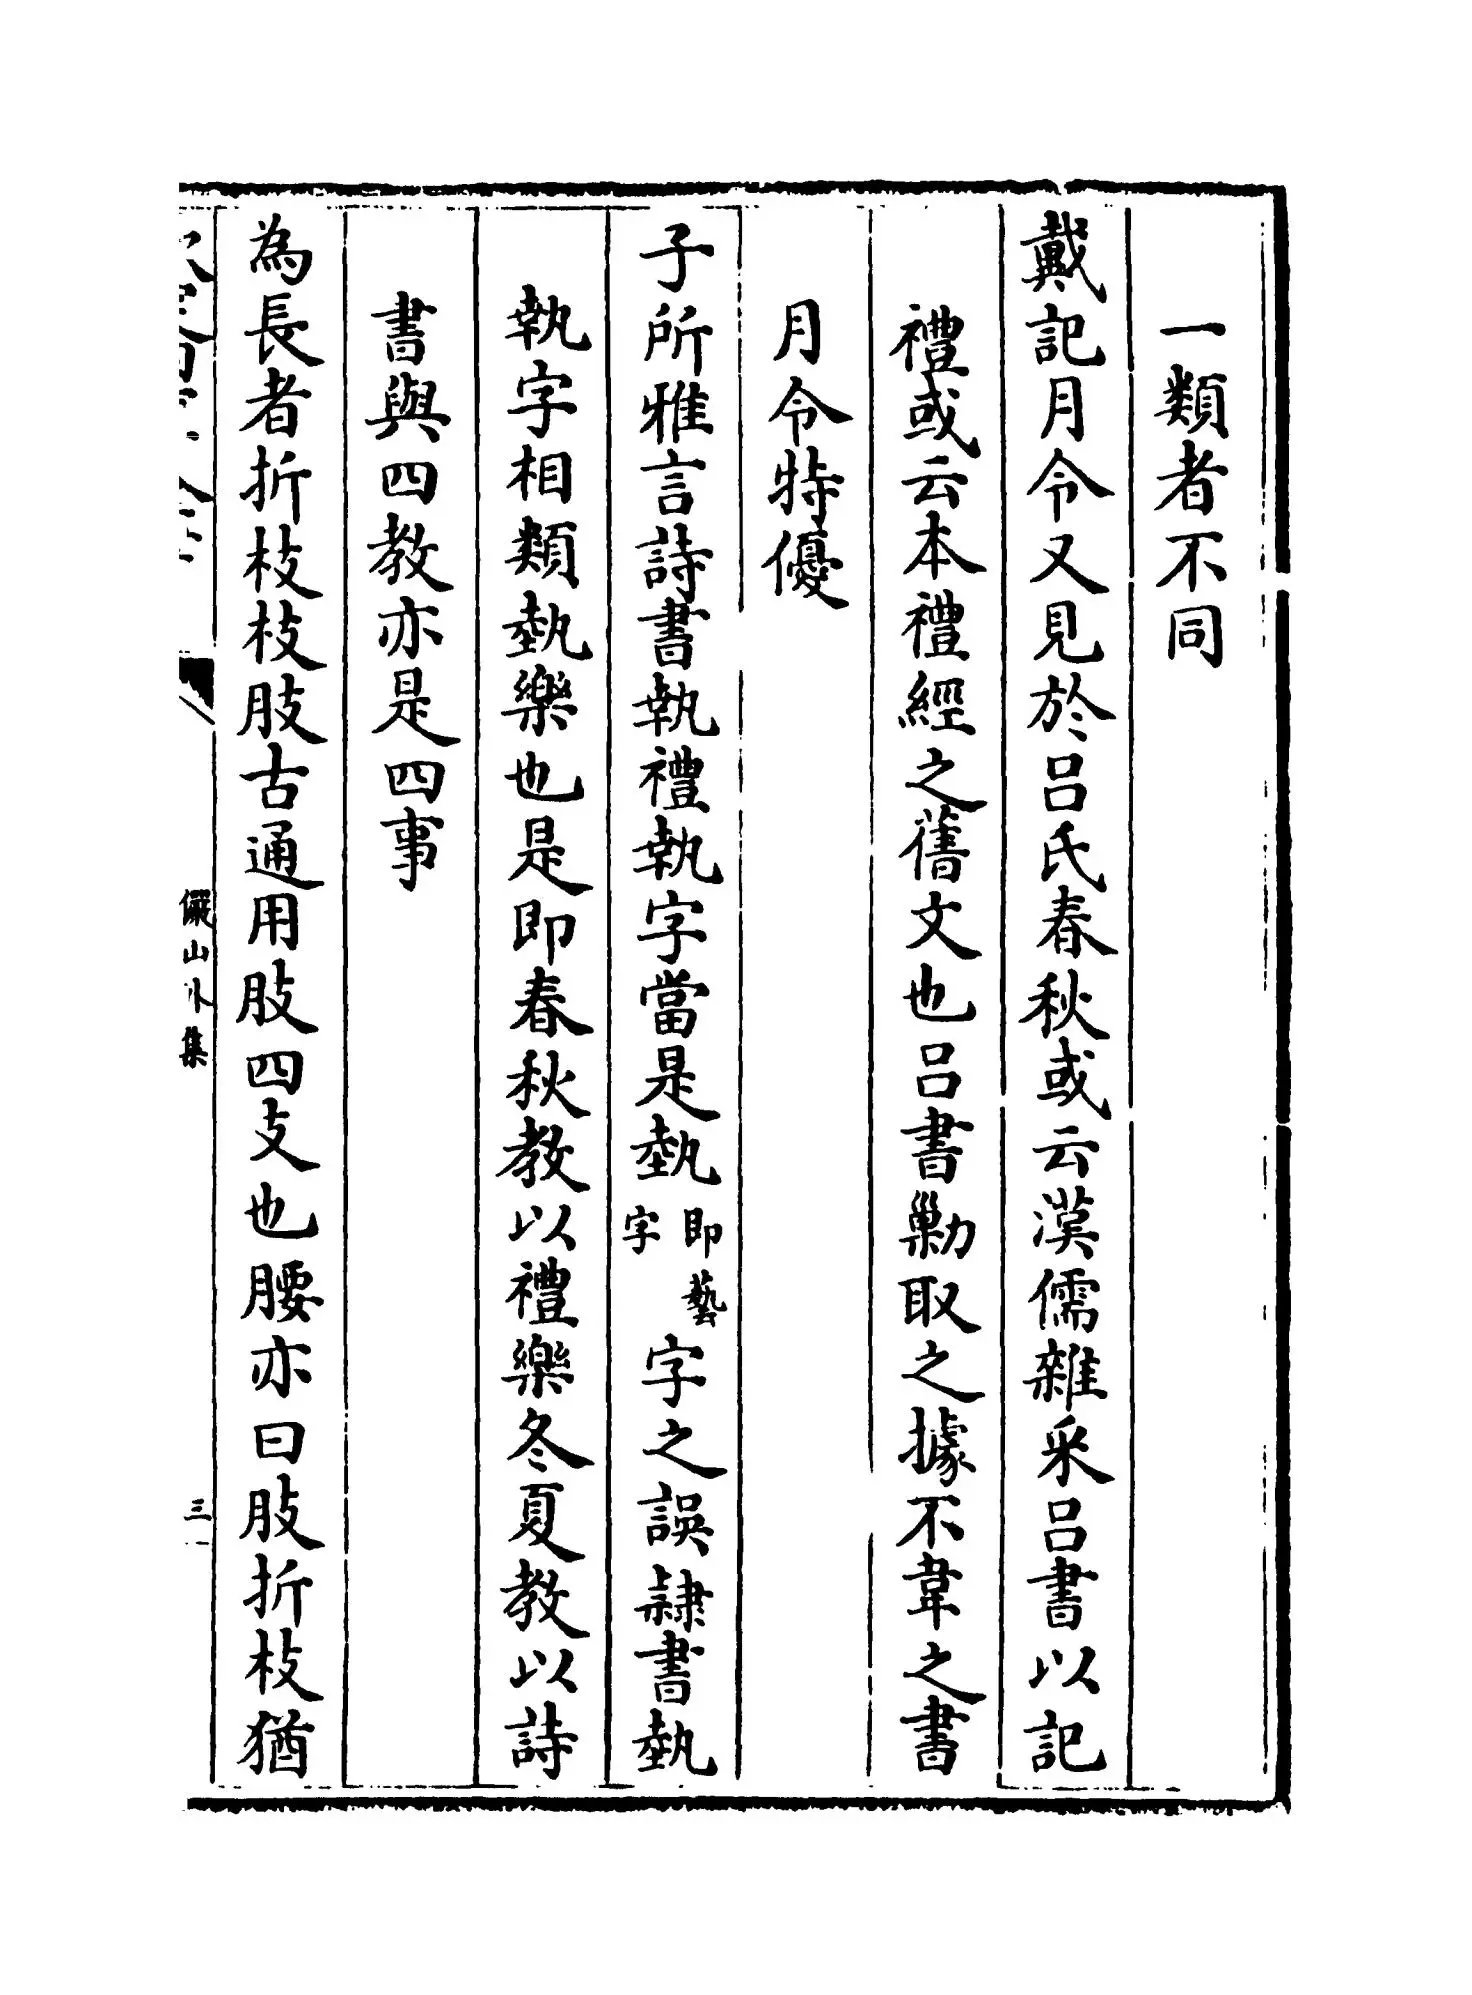 一類者不同
戴記月令又見於呂氏春秋或云漢儒雜采呂書以記
禮或云本禮經之舊文也呂書勦取之據不韋之書
月令特優
子所雅言詩書執禮執字當是埶即藝字字之誤隷書埶
執字相類埶樂也是即春秋教以禮樂冬夏教以詩
書與四教亦是四事
為長者折枝枝肢古通用肢四支也腰亦曰肢折枝猶
儼山外集
三